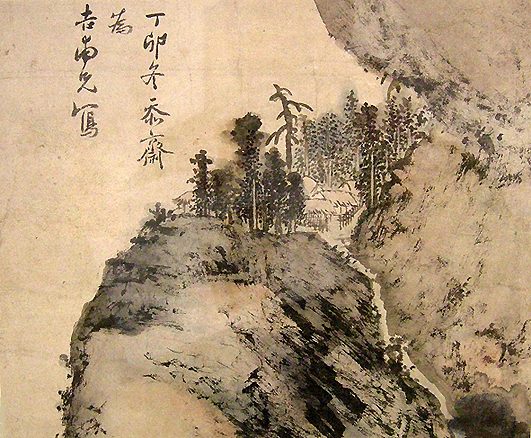 丁卯冬忝齋
為
吉甫兄寫